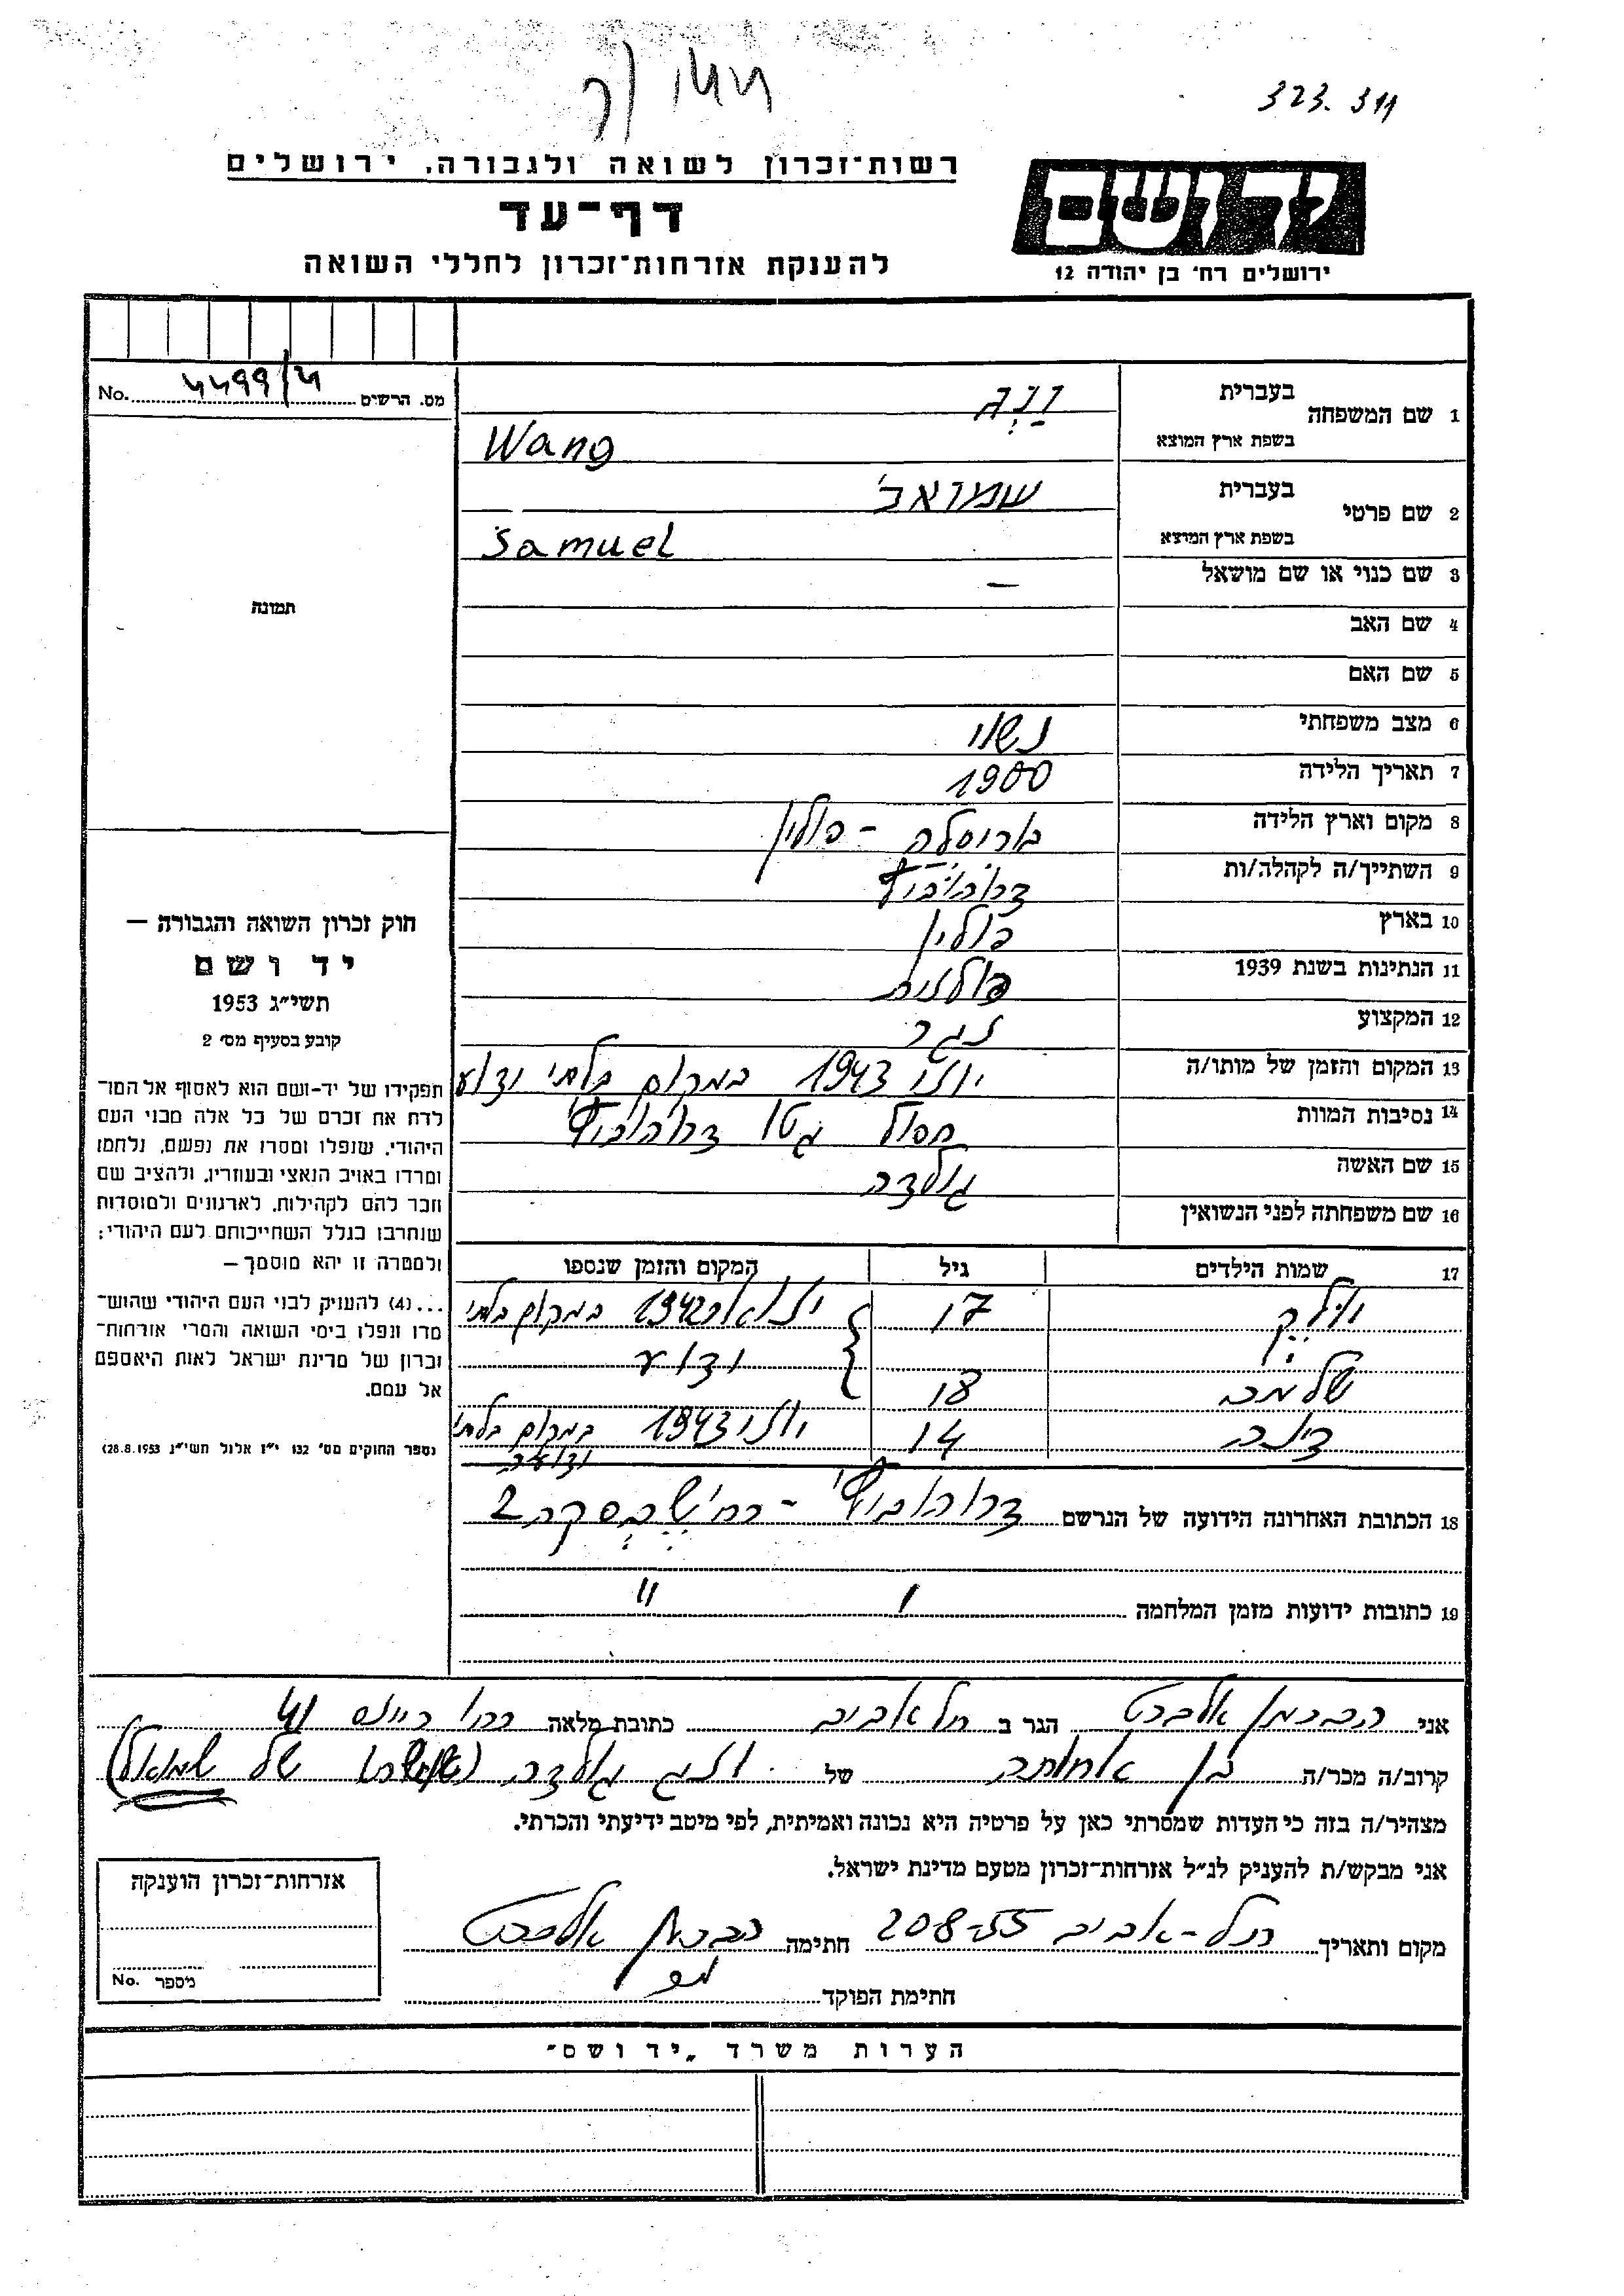 323.311
רשות־זכרון לשואה ולגבורה, ירושלים
דף־עד
להענקת אזרחות־זכרון לחללי השואה
יד ושם
ירושלים רח' בן יהודה 12
No. 4499/4 מס. הרשים
1 שם המשפחה בעברית וַנְג
בשפת ארץ המוצא Wang
2 שם פרטי בעברית שמואל
בשפת ארץ המוצא Samuel
3 שם כנוי או שם מושאל —
4 שם האב
5 שם האם
6 מצב משפחתי נשוי
7 תאריך הלידה 1900
8 מקום וארץ הלידה - פולין
9 השתייך/ה לקהלה/ות דרוהוביץ'
10 בארץ פולין
11 הנתינות בשנת 1939 פולנית
12 המקצוע נגר
13 המקום והזמן של מותו/ה יוני 1943 במקום בלתי ידוע
14 נסיבות המוות חסול גטו דרוהוביץ'
15 שם האשה גולדה
16 שם משפחתה לפני הנשואין
17 שמות הילדים גיל המקום והזמן שנספו
17 ינואר 1942 במקום בלתי
ידוע
שלמה 18
דינה 14 יוני 1943 במקום בלתי
ידוע
18 הכתובת האחרונה הידועה של הנרשם דרוהוביץ' - רח' 2
19 כתובות ידועות מזמן המלחמה " "
תמונה
חוק זכרון השואה והגבורה —
יד ושם
תשי"ג 1953
קובע בסעיף מס' 2
תפקידו של יד-ושם הוא לאסוף אל המו־
לדת את זכרם של כל אלה מבני העם
היהודי, שנפלו ומסרו את נפשם, נלחמו
ומרדו באויב הנאצי ובעוזריו, ולהציב שם
וזכר להם לקהילות, לארגונים ולמוסדות
שנחרבו בגלל השתייכותם לעם היהודי;
ולמטרה זו יהא מוסמך —
...(4) להעניק לבני העם היהודי שהוש־
מדו ונפלו בימי השואה והמרי אזרחות־
זכרון של מדינת ישראל לאות היאספם
אל עמם.
(ספר החוקים מס' 132 י"ז אלול תשי"ג 28.8.1953)
אני אלברט הגר ב תל אביב כתובת מלאה
קרוב/ה מכר/ה בן אחותה של ונג גולדה של שמואל)
מצהיר/ה בזה כי העדות שמסרתי כאן על פרטיה היא נכונה ואמיתית, לפי מיטב ידיעתי והכרתי.
אני מבקש/ת להעניק לנ"ל אזרחות־זכרון מטעם מדינת ישראל.
מקום ותאריך תל-אביב 20.8-55 חתימה אלברט
חתימת הפוקד
אזרחות־זכרון הוענקה
No. מספר
הערות משרד „יד ושם"